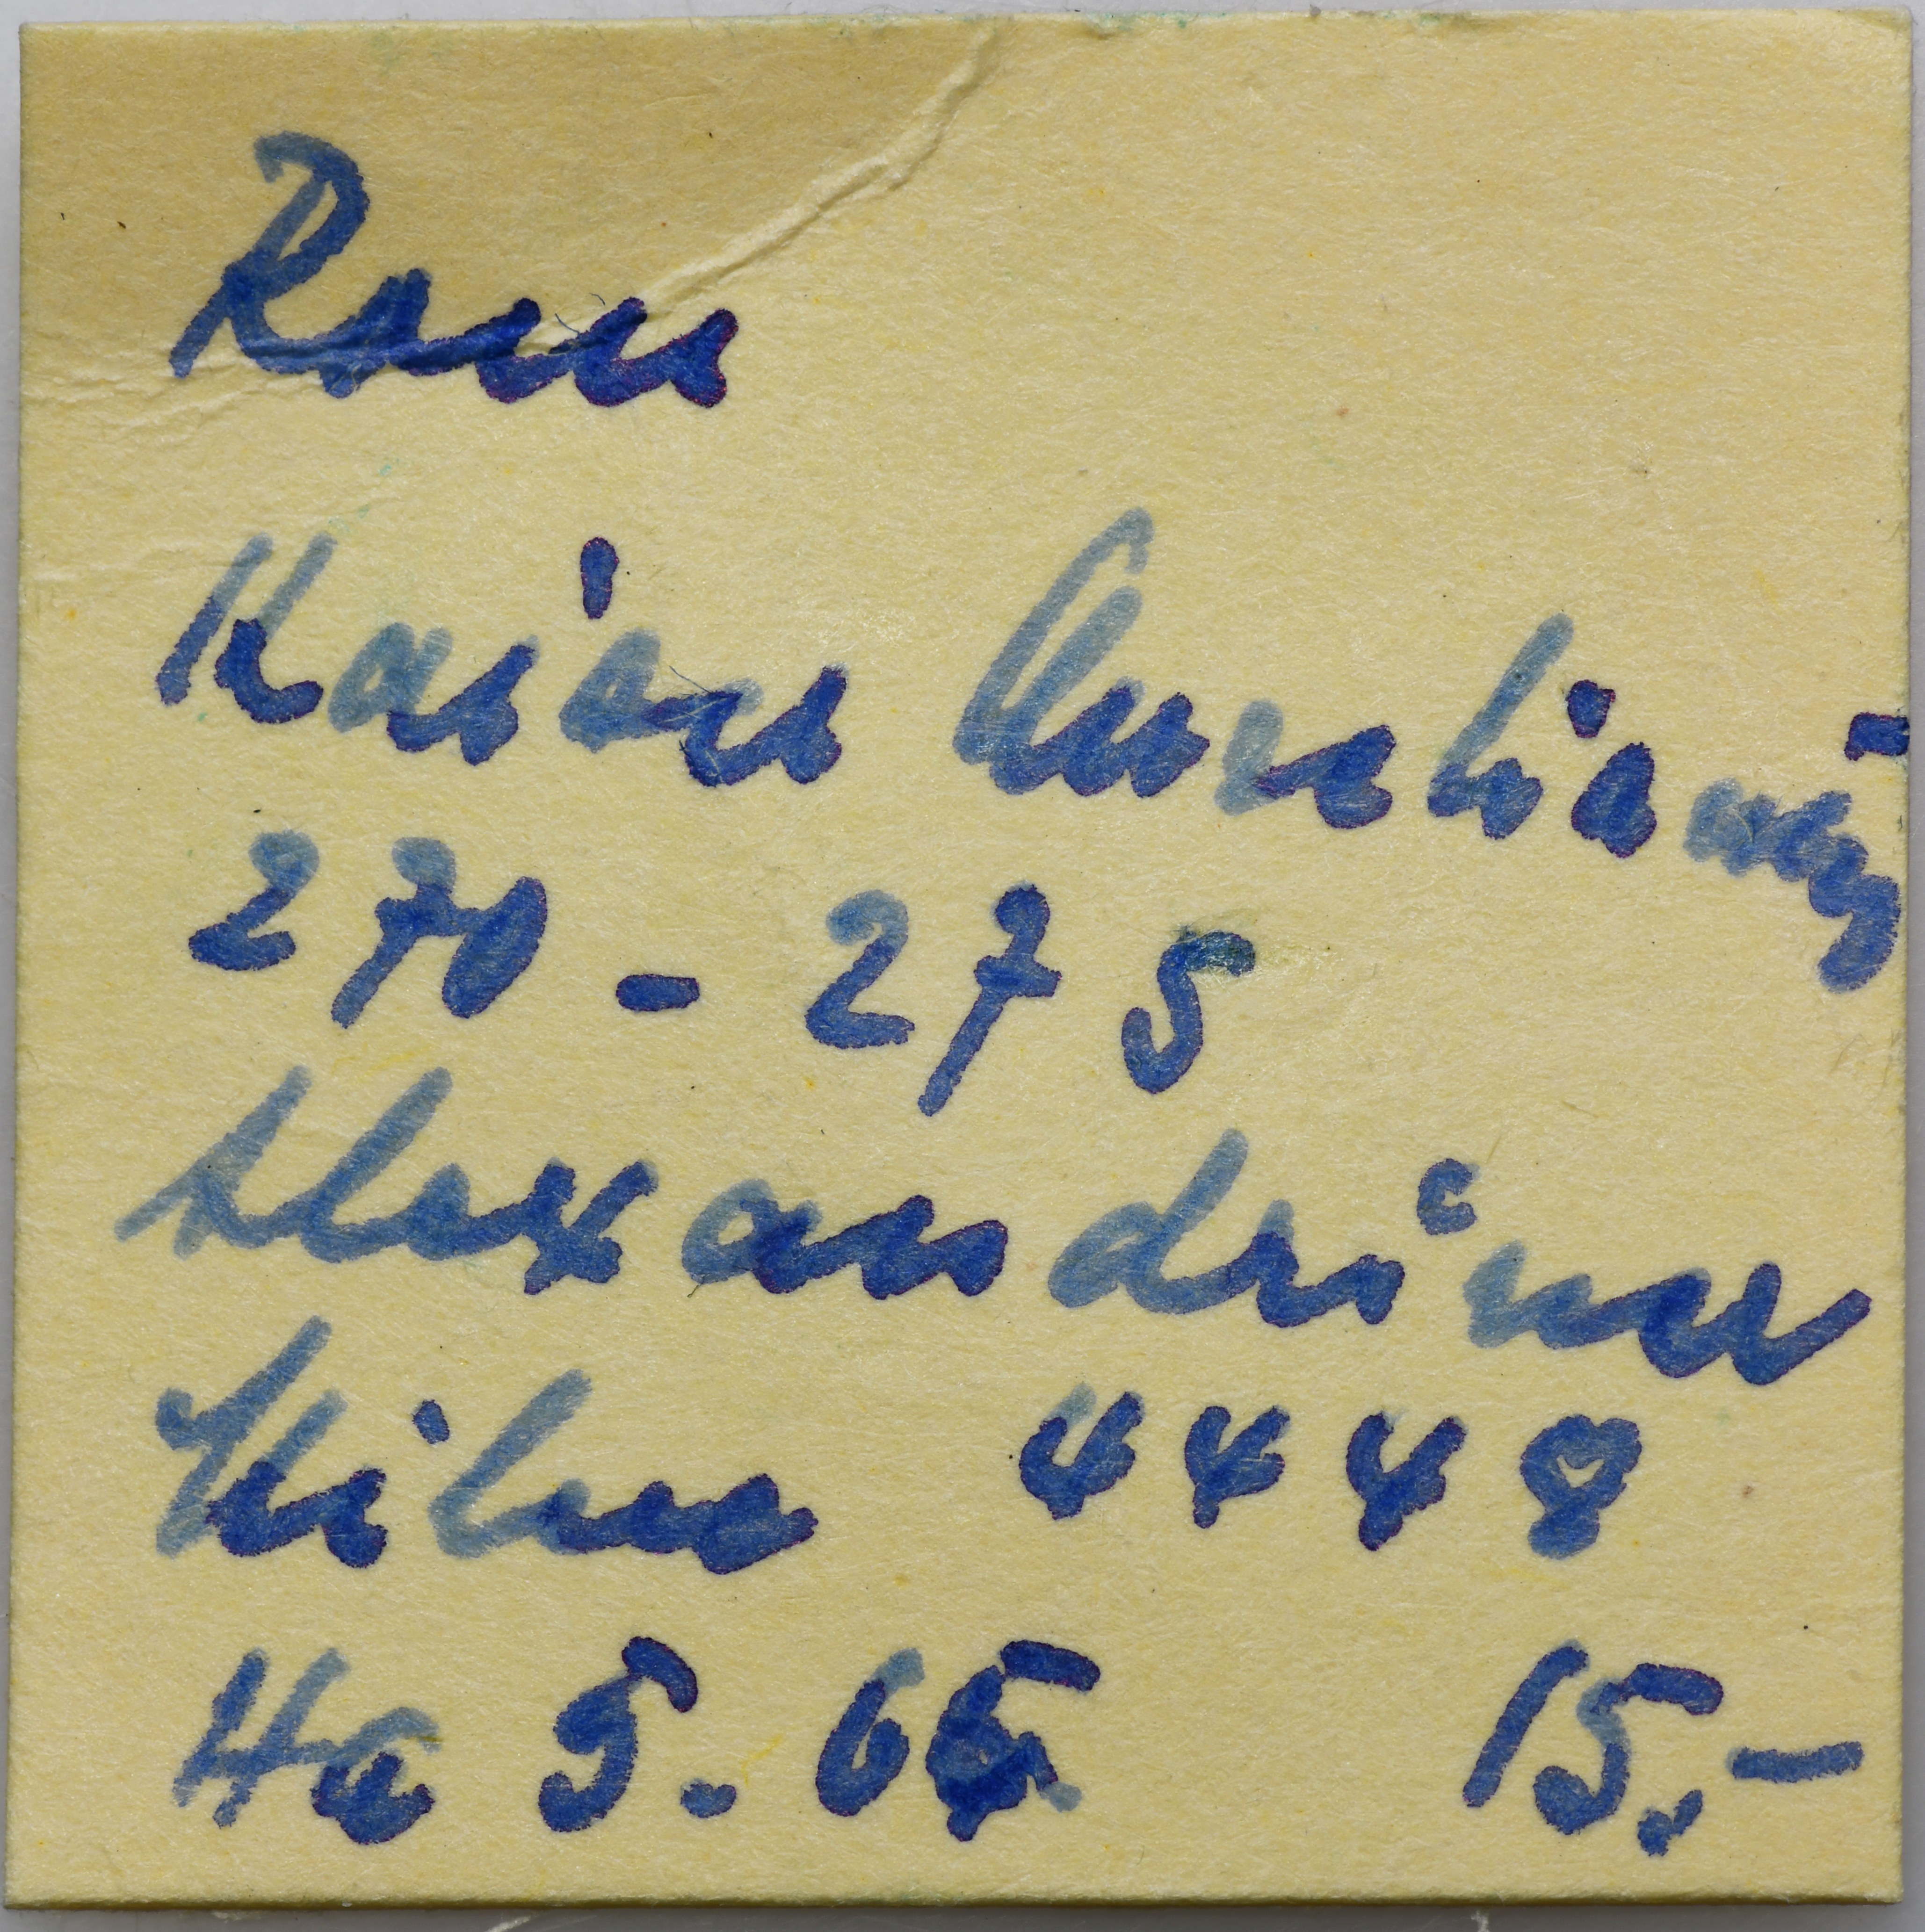 Rom
Kaiser Aurelianus
270 - 275
Alexandriner
Milne 4448
Ha 5. 65 15.-